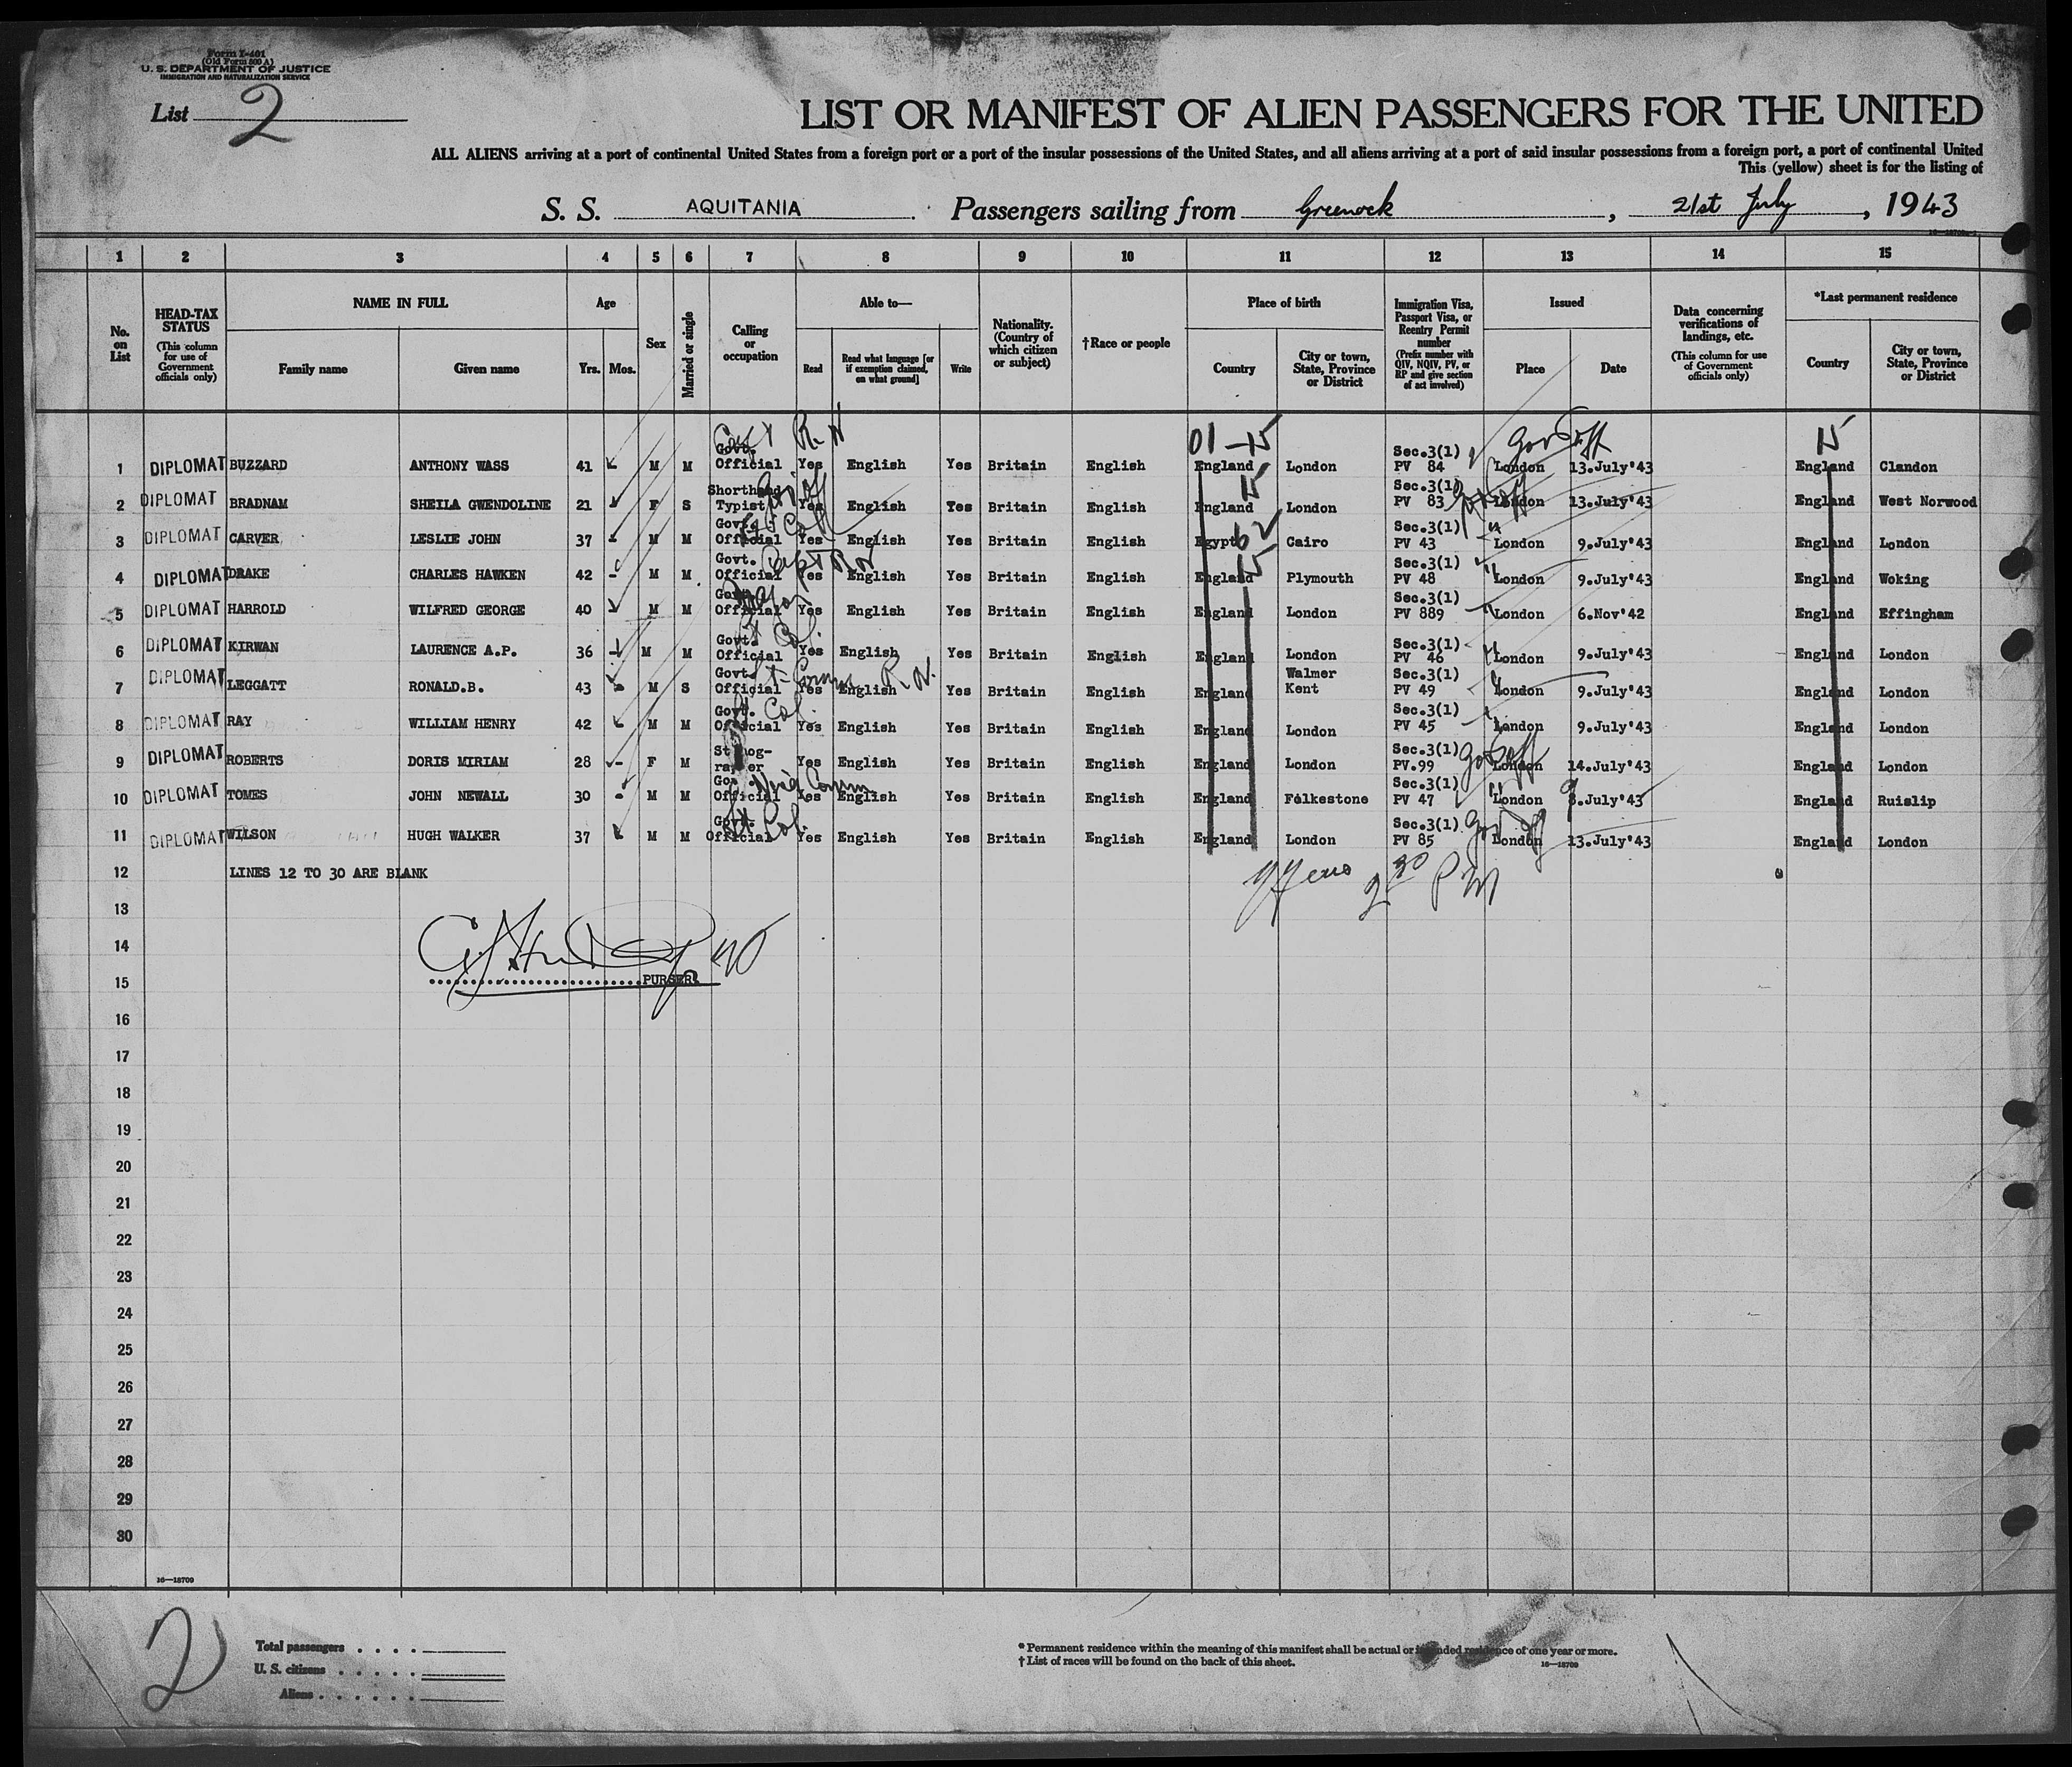 Form I-401
(Old Form 500 A)
U. S. DEPARTMENT OF JUSTICE
IMMIGRATION AND NATURALIZATION SERVICE
List 2
LIST OR MANIFEST OF ALIEN PASSENGERS FOR THE UNITED
ALL ALIENS arriving at a port of continental United States from a foreign port or a port of the insular possessions of the United States, and all aliens arriving at a port of said insular possessions from a foreign port, a port of continental United
This (yellow) sheet is for the listing of
S. S. AQUITANIA. Passengers sailing from Greenock, 21st July, 1943
1 2 3 4 5 6 7 8 9 10 11 12 13 14 15
No. on List
HEAD-TAX STATUS (This column for use of Government officials only)
NAME IN FULL
Family name
Given name
Age
Yrs. Mos.
Sex
Married or single
Calling or occupation
Able to—
Read
Read what language [or if exemption claimed, on what ground]
Write
Nationality. (Country of which citizen or subject)
†Race or people
Place of birth
Country
City or town, State, Province or District
Immigration Visa, Passport Visa, or Reentry Permit number (Prefix number with QIV, NQIV, PV, or RP and give section of act involved)
Issued
Place
Date
Data concerning verifications of landings, etc. (This column for use of Government officials only)
*Last permanent residence
Country
City or town, State, Province or District
Capt R.N 01-15 Gov Off 15
1 DIPLOMAT BUZZARD ANTHONY WASS 41 M M Govt. Official Yes English Yes Britain English England London Sec.3(1) PV 84 London 13.July'43 England Clandon
2 DIPLOMAT BRADNAM SHEILA GWENDOLINE 21 F S Shorthand Typist Gov Off Yes English Yes Britain English England 15 London Sec.3(1) PV 83 Gov Off London 13.July'43 England West Norwood
3 DIPLOMAT CARVER LESLIE JOHN 37 M M Govt. Official Lt Col Yes English Yes Britain English Egypt 62 Cairo Sec.3(1) PV 43 London 9.July'43 England London
4 DIPLOMAT DRAKE CHARLES HAWKEN 42 - M M Govt. Official Capt R N Yes English Yes Britain English England 15 Plymouth Sec.3(1) PV 48 " London 9.July'43 England Woking
5 DIPLOMAT HARROLD WILFRED GEORGE 40 M M Govt. Official Major Yes English Yes Britain English England London Sec.3(1) PV 889 " London 6.Nov'42 England Effingham
6 DIPLOMAT KIRWAN LAURENCE A.P. 36 M M Govt. Official Lt Col. Yes English Yes Britain English England London Sec.3(1) PV 46 " London 9.July'43 England London
7 DIPLOMAT LEGGATT RONALD.B. 43 M S Govt. Official Lt-Comm. R.N. Yes English Yes Britain English England Walmer Kent Sec.3(1) PV 49 " London 9.July'43 England London
8 DIPLOMAT RAY WILLIAM HENRY 42 M M Govt. Official Lt Col. Yes English Yes Britain English England London Sec.3(1) PV 45 " London 9.July'43 England London
9 DIPLOMAT ROBERTS DORIS MIRIAM 28 - F M Stenographer Yes English Yes Britain English England London Sec.3(1) PV.99 Gov Off London 14.July'43 England London
10 DIPLOMAT TOMES JOHN NEWALL 30 - M M Govt. Official Wing Comm Yes English Yes Britain English England Folkestone Sec.3(1) PV 47 " London 9 .July'43 England Ruislip
11 DIPLOMAT WILSON HUGH WALKER 37 M M Govt. Official Lt Col. Yes English Yes Britain English England London Sec.3(1) PV 85 Gov Off London 13.July'43 England London
12 LINES 12 TO 30 ARE BLANK
2 30 PM
13
14
15 PURSER
16
17
18
19
20
21
22
23
24
25
26
27
28
29
30
16—18709
2
Total passengers
U. S. citizens
Aliens
* Permanent residence within the meaning of this manifest shall be actual or intended residence of one year or more.
† List of races will be found on the back of this sheet.
16—18709